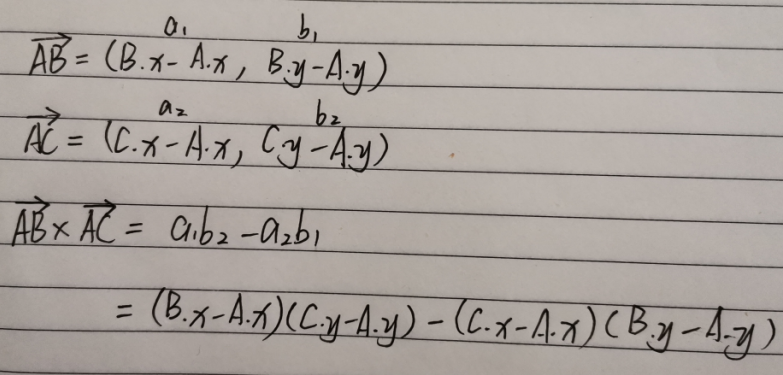 a₁ b₁
AB→ = (B.x - A.x, B.y - A.y)
a₂ b₂
AC→ = (C.x - A.x, C.y - A.y)
AB→ × AC→ = a₁b₂ - a₂b₁
= (B.x - A.x)(C.y - A.y) - (C.x - A.x)(B.y - A.y)